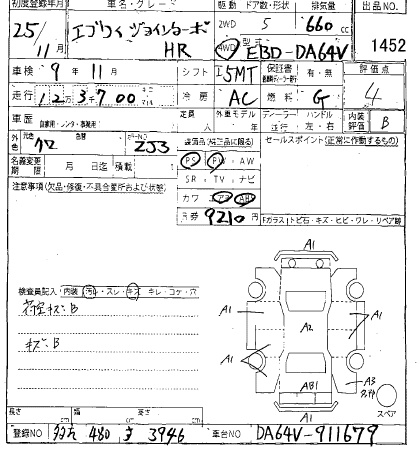 初度登録年月 車名・グレード 駆動 ドア数・形状 排気量 出品NO
25/11月 エブリイ ジョインターボ HR 2WD 4WD 5 660cc
型式 EBD-DA64V 1452
車検 9年11月 シフト I5MT 保証書 有・無 評価点 4
走行 12万3千700 冷房 AC 燃料 G 内装評価 B
車歴 自家用・レンタ・事業用 定員 人 外車モデル 年 ディーラー 並行 ハンドル 左・右
外色 元色 クロ 色替 カラーNO ZJ3 純正品(純正品に限る) セールスポイント(正常に作動するもの)
名義変更期限 月 日迄 積載 PS PW AW
SR TV ナビ
注意事項(欠品・修復・不具合箇所および状態) カワ エアB ABS
R券 9210円 Fガラス トビ石・キズ・ヒビ・ワレ・リペア跡
A1
検査員記入 内装 汚レ・スレ・キズ・キレ・コゲ・穴
荷室キズ:B A1 A2 A1
キズ:B
A1 A3
AB1
A1 スペア
長さ cm 幅 cm 高さ cm
登録NO 480 き 3946 車台NO DA64V-911679